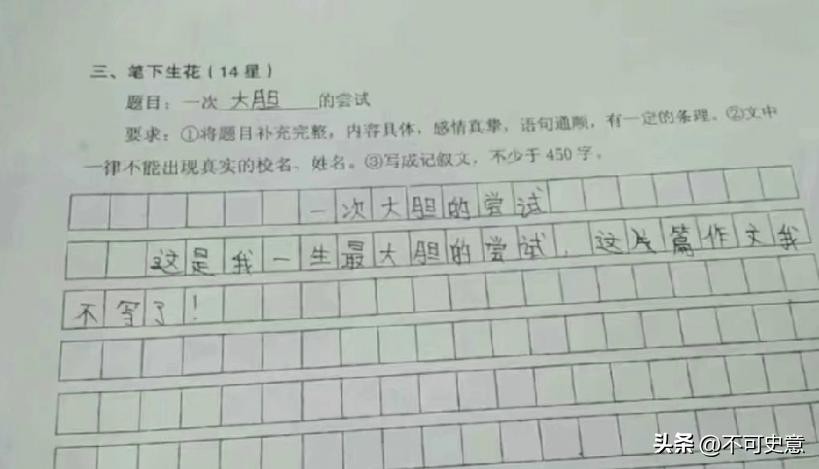 三、笔下生花(14星)
题目:一次 大胆 的尝试
要求:①将题目补充完整,内容具体,感情真挚,语句通顺,有一定的条理。②文中
一律不能出现真实的校名、姓名。③写成记叙文,不少于450字。
一次大胆的尝试
这是我一生最大胆的尝试,这篇作文我
不写了!
头条 @不可史意